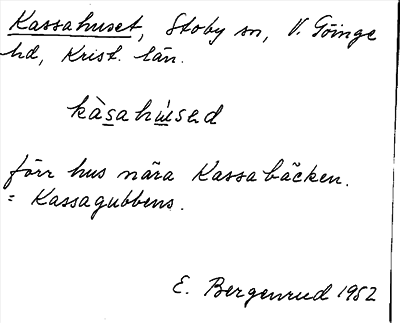 Kassahuset, Stoby sn, V. Göinge
hd, Krist. län.
kàsahúsed
förr hus nära Kassabäcken.
= Kassagubbens.
E. Bergenrud 1982